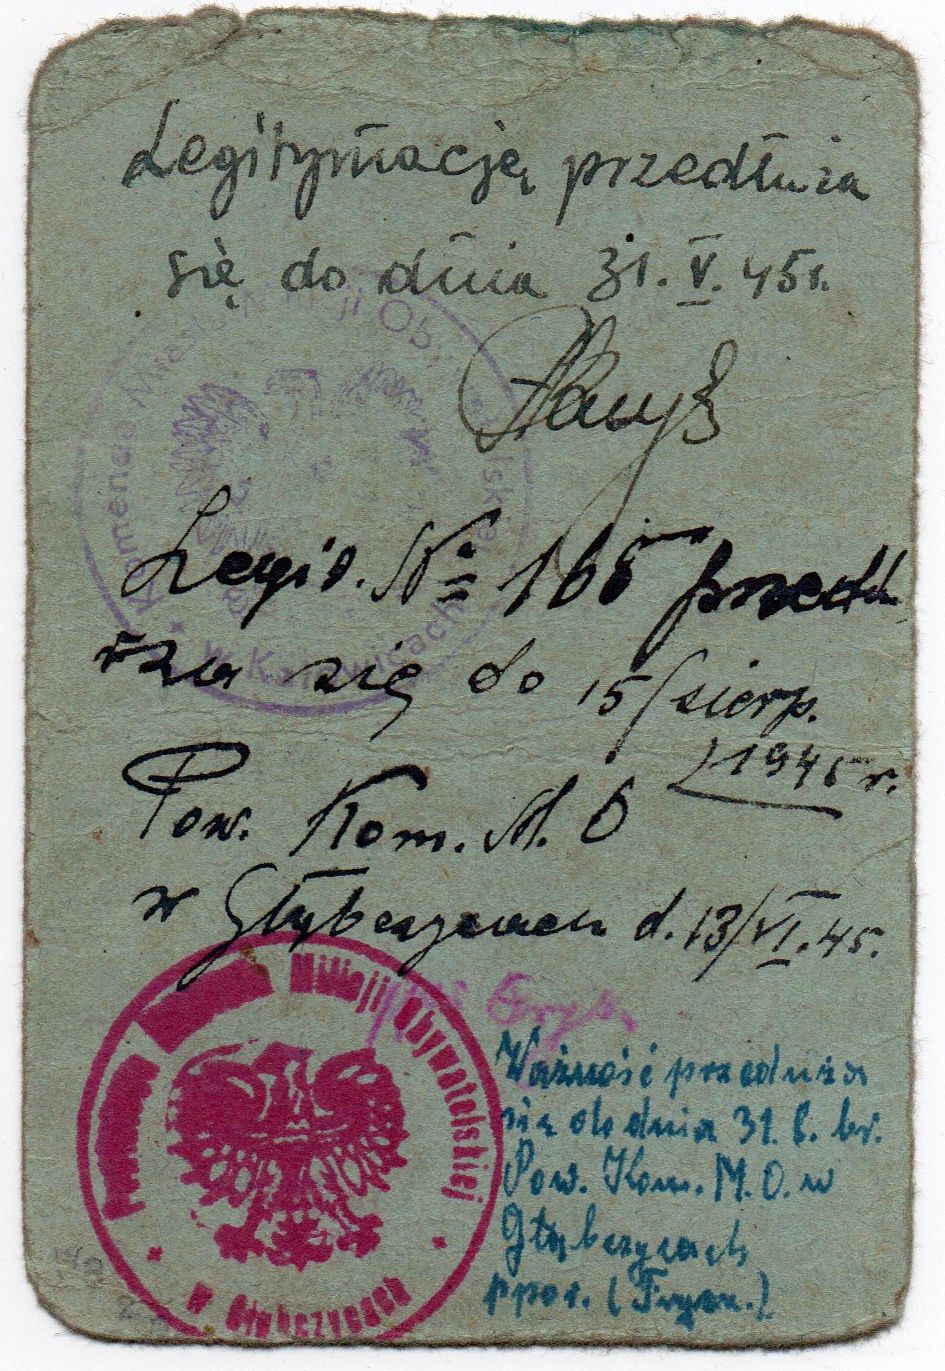 Legitymację przedłuża
się do dnia 31. V. 45r.
Komenda Miasta Milicji Obywatelskiej
w Katowicach
Legit. № 165 przedłu
rza się do 15/sierp.
1945 r.
Pow. Kom. M. O
w Głybczycach d. 13/VI. 45.
Milicji Obywatelskiej
w Głubczycach
Ważność przedłuża
się do dnia 31. 8. br.
Pow. Kom. M. O. w
Głybczycach
ppor.